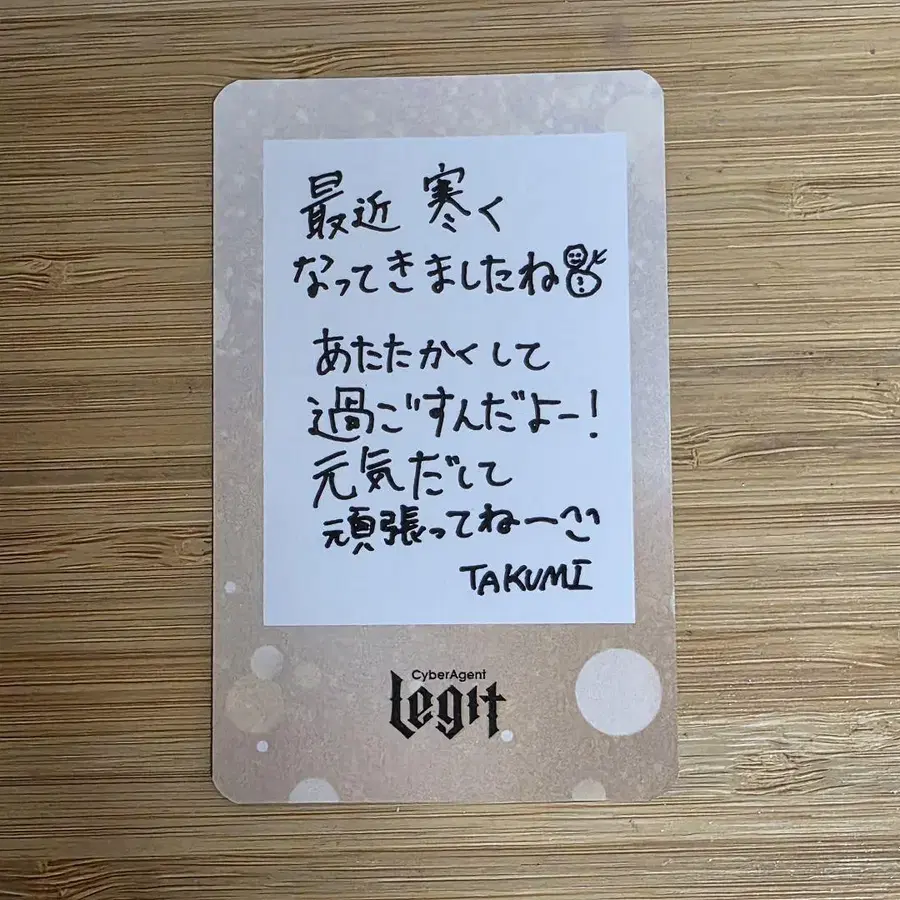 最近 寒く
なってきましたね
あたたかくして
過ごすんだよー!
元気だして
頑張ってねー^^
TAKUMI
CyberAgent
Legit